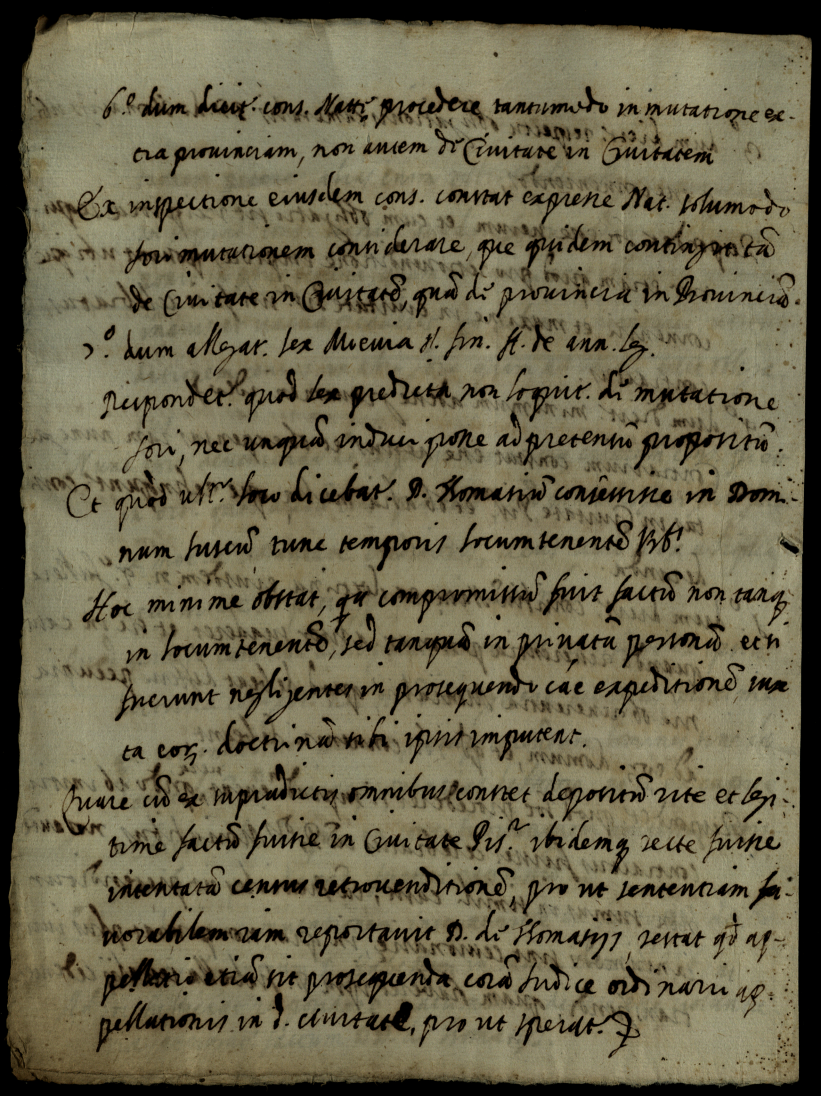 6.º dum dicit. cons. Nattę procedere tantumodo in mutatione ex-
tra provinciam, non autem de Civitate in Civitatem
Ex inspectione eiusdem cons. constat expresse Nat. solumodo
fori mutationem considerare, que quidem contingit tā
de Civitate in Civitatē, quā de provincia in Provinciā.
7.º dum allegat. lex Mæuia §. fin. ff. de ann. leg.
Respondet. quod lex predicta non loquit. de mutatione
fori, nec unquā induci posse ad pretensū propositū.
Et quod ult.º loco dicebat. D. Homatiū consensisse in Domi-
num suscū tunc temporis locumtenentē
Hoc minime obstat, qa compromissū fuit factū non tanq
in locumtenentē, sed tanquā in privatā personā et si
fuerunt negligentes in prosequendo cāe expeditionē, iux
ta eoꝝ. doctrinā sibi ipsis imputent.
Quare cū ex supradictis omnibus constet depositū rite et legi-
time factū fuisse in Civitate Pis.ͬ ibidemq recte fuisse
intentatā census retrovenditionē, pro ut sententiam fa-
vorabilem iam reportavit D. de Homatijs, restat qd ap-
pellatio etiā sit prosequenda corā Iudice ordinario ap-
pellationis in d. civitate, pro ut sperat.